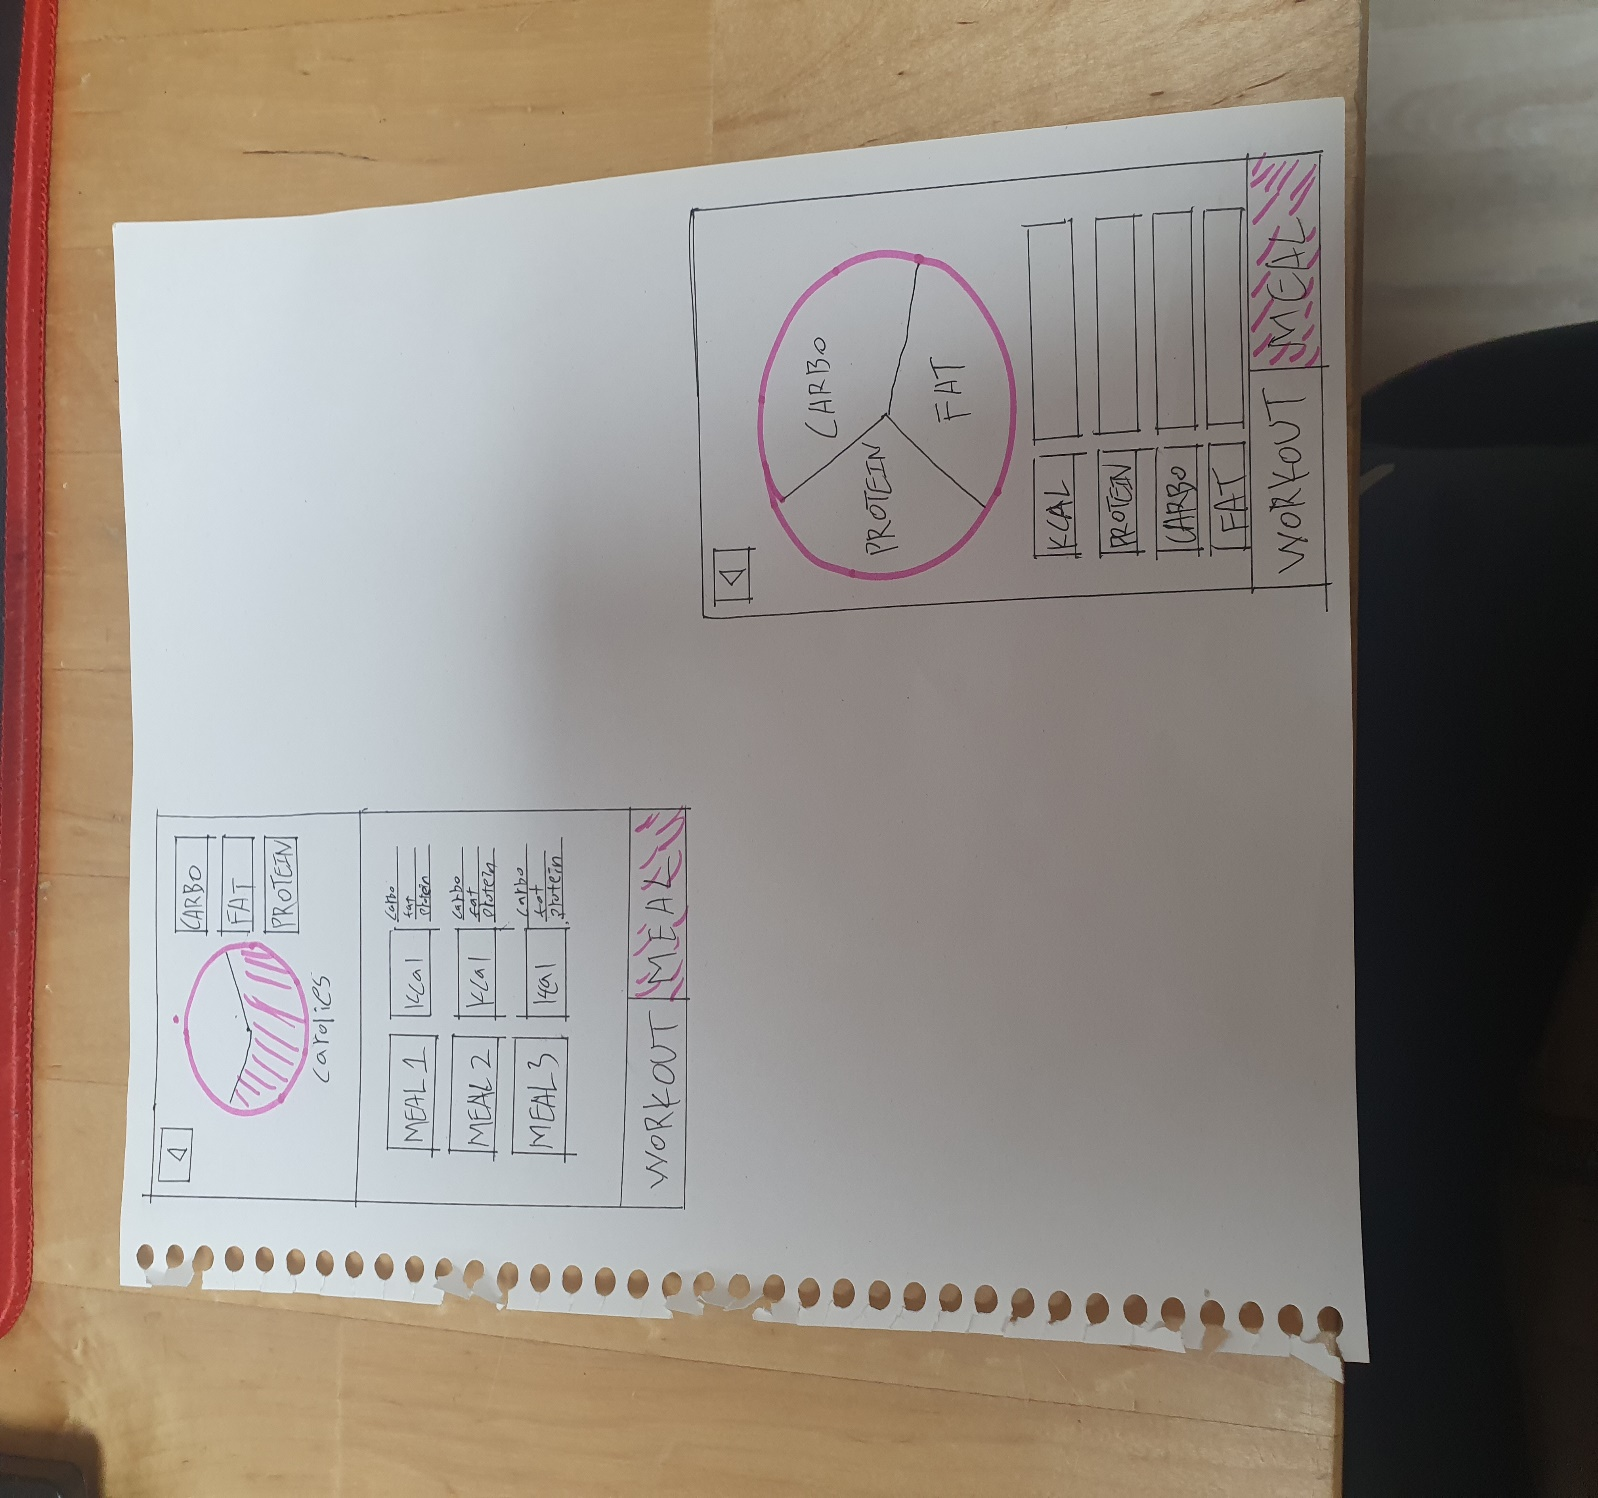 CARBO
FAT
PROTEIN
carolies
MEAL 1 Kcal carbo
fat
protein
MEAL 2 Kcal carbo
fat
protein
MEAL 3 Kcal carbo
fat
protein
WORKOUT MEAL
CARBO
PROTEIN
FAT
KCAL
PROTEIN
CARBO
FAT
WORKOUT MEAL